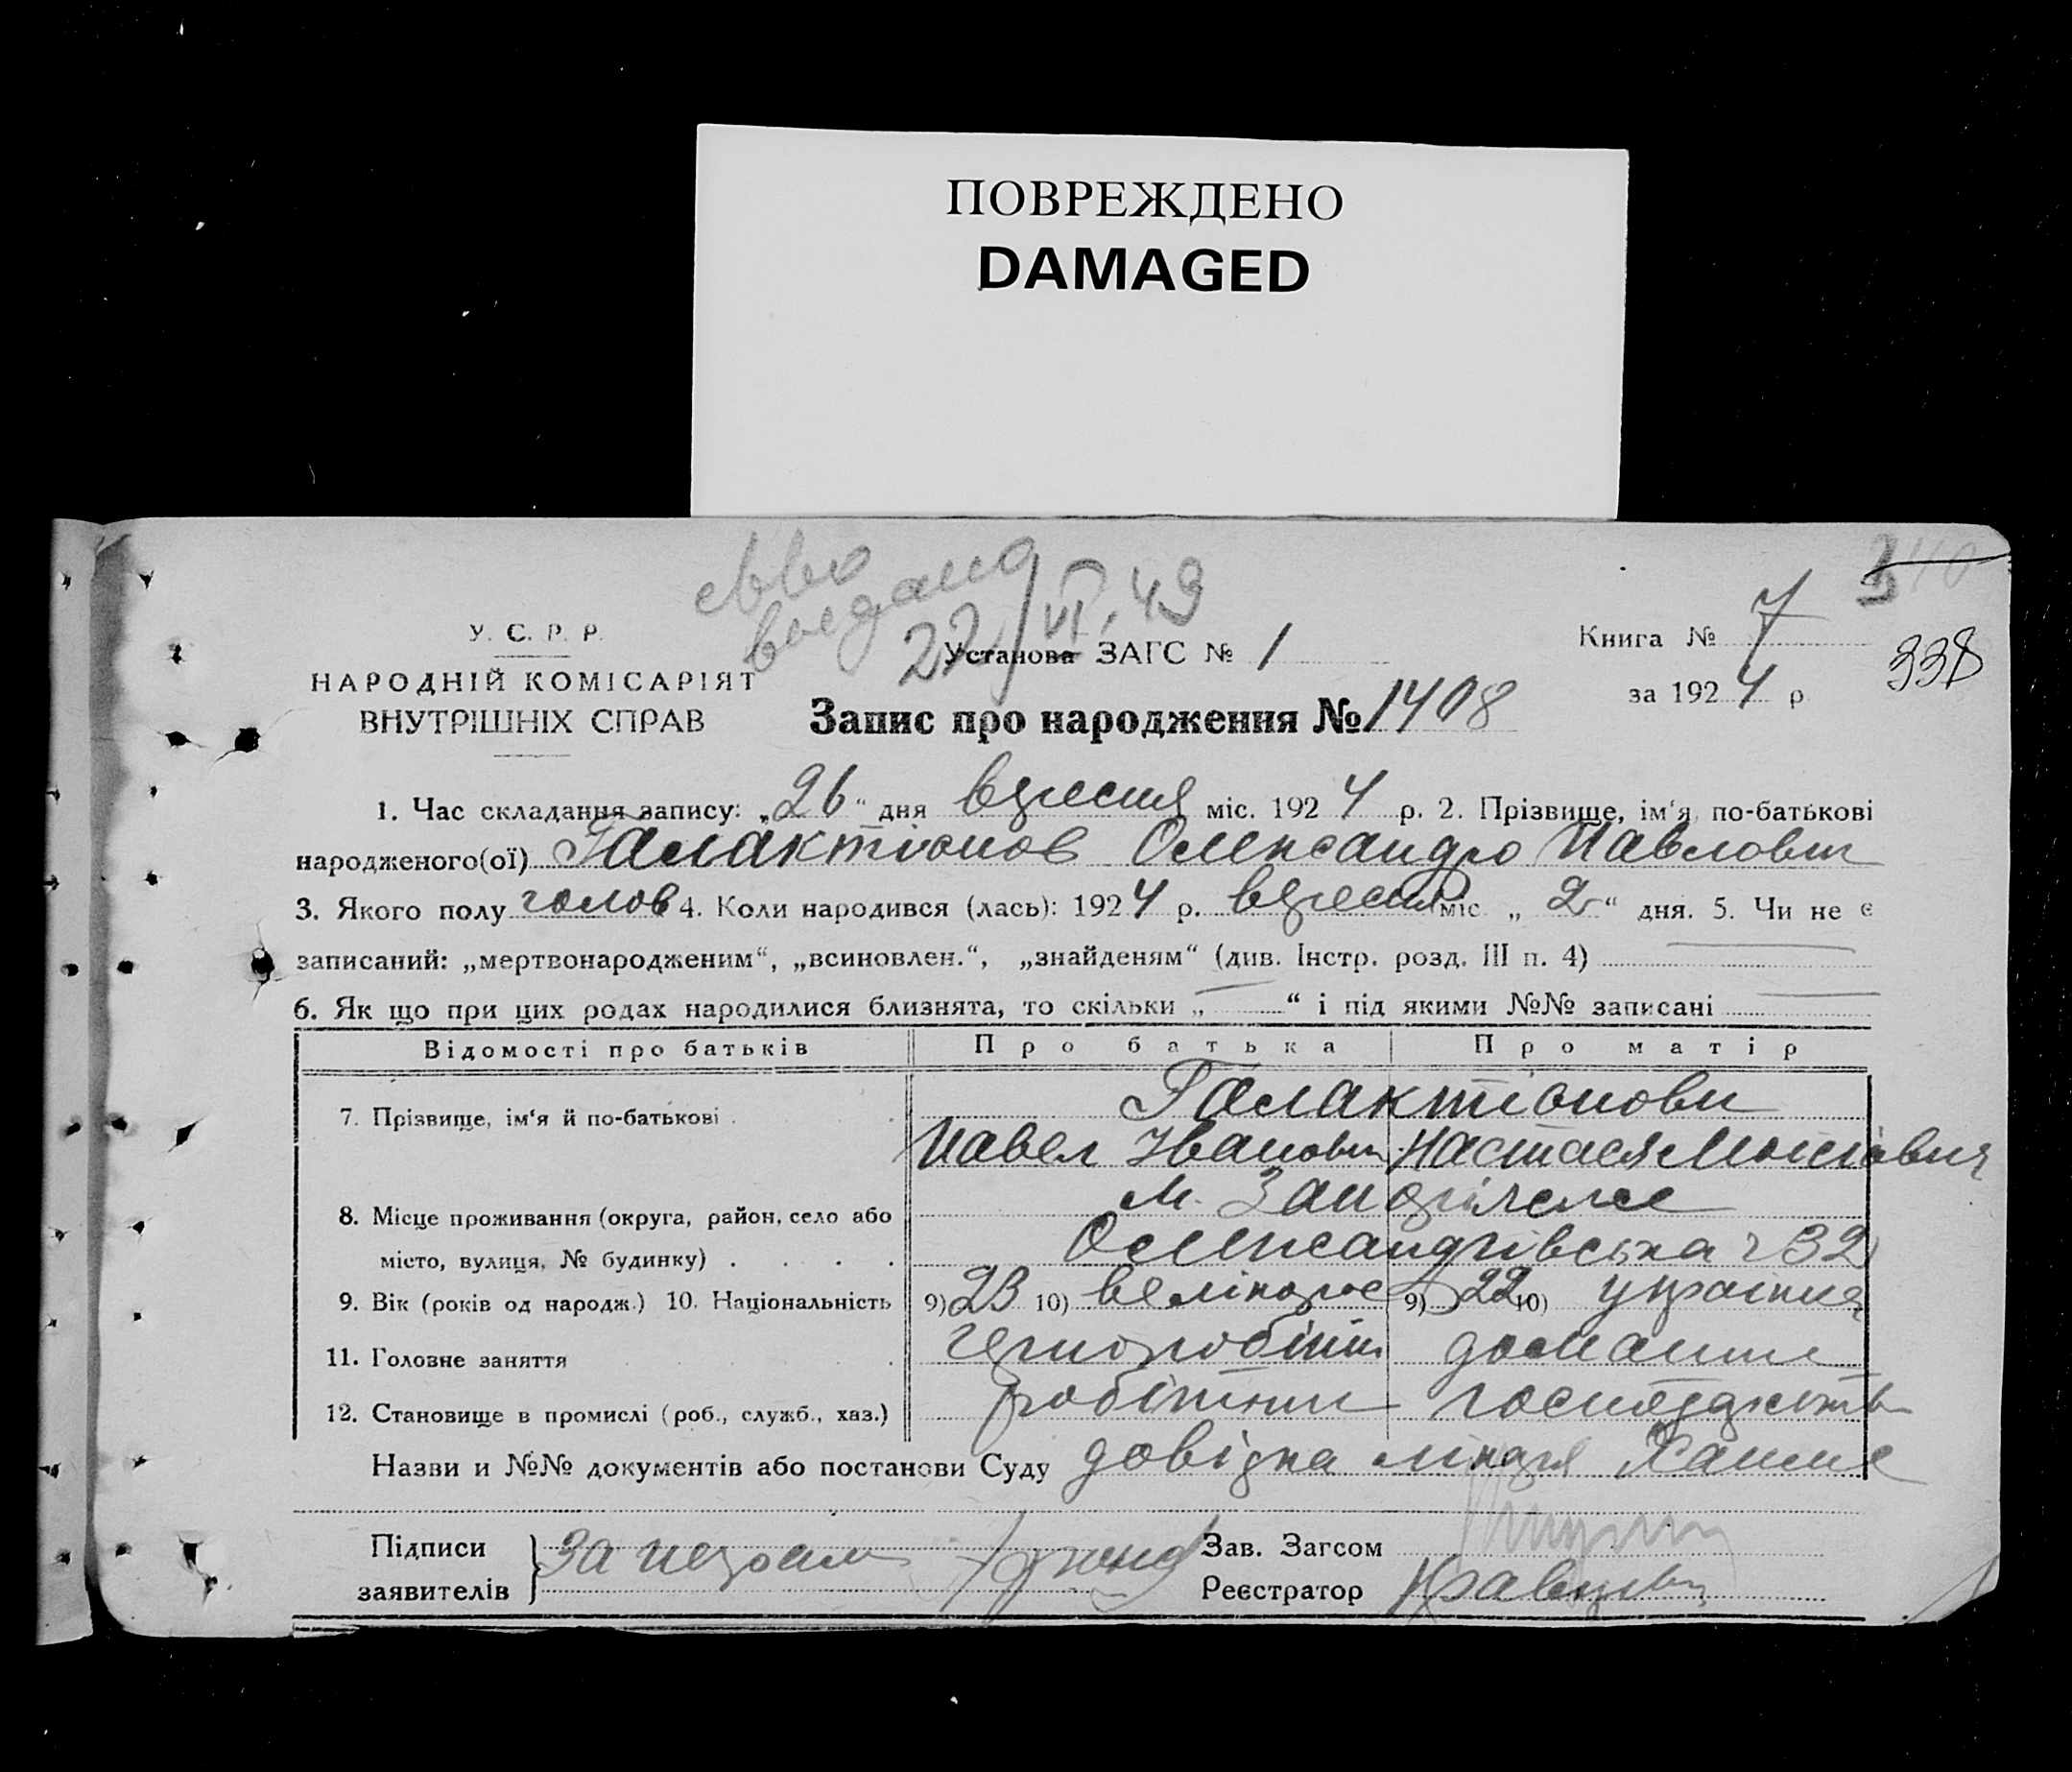 ПОВРЕЖДЕНО
DAMAGED
340
св-во
выдано
22/VI.49
У. С. Р. Р.
НАРОДНІЙ КОМІСАРІЯТ
ВНУТРІШНІХ СПРАВ
Установа ЗАГС № 1
Книга № 7
за 1924 р.
338
Запис про народження № 1408
1. Час складання запису: „26“ дня вересня міс. 1924 р. 2. Прізвище, ім‘я, по-батькові
народженого(ої) Галактіонов Олександро Павлович
3. Якого полу чолов 4. Коли народився (лась): 1924 р. вересня міс. „2“ дня. 5. Чи не є
записаний: „мертвонародженим“, „всиновлен.“, „знайденям“ (див. Інстр. розд. III п. 4)
6. Як що при цих родах народилися близнята, то скільки „ “ і під якими №№ записані
Відомості про батьків Про батька Про матір
7. Прізвище, ім‘я й по-батькові Галактіонови
Павел Іванович Настася
8. Місце проживання (округа, район, село або м. Запоріжже
місто, вулиця, № будинку) Олександрівська 32
9. Вік (років од народж.) 10. Національність 9) 23 10) велікорос 9) 22 10) українка
11. Головне заняття чернороботій домашнє
12. Становище в промислі (роб., служб., хаз.) робітник господарство
Назви и №№ документів або постанови Суду довідка лікаря
Підписи
заявителів
Зав. Загсом
Реєстратор